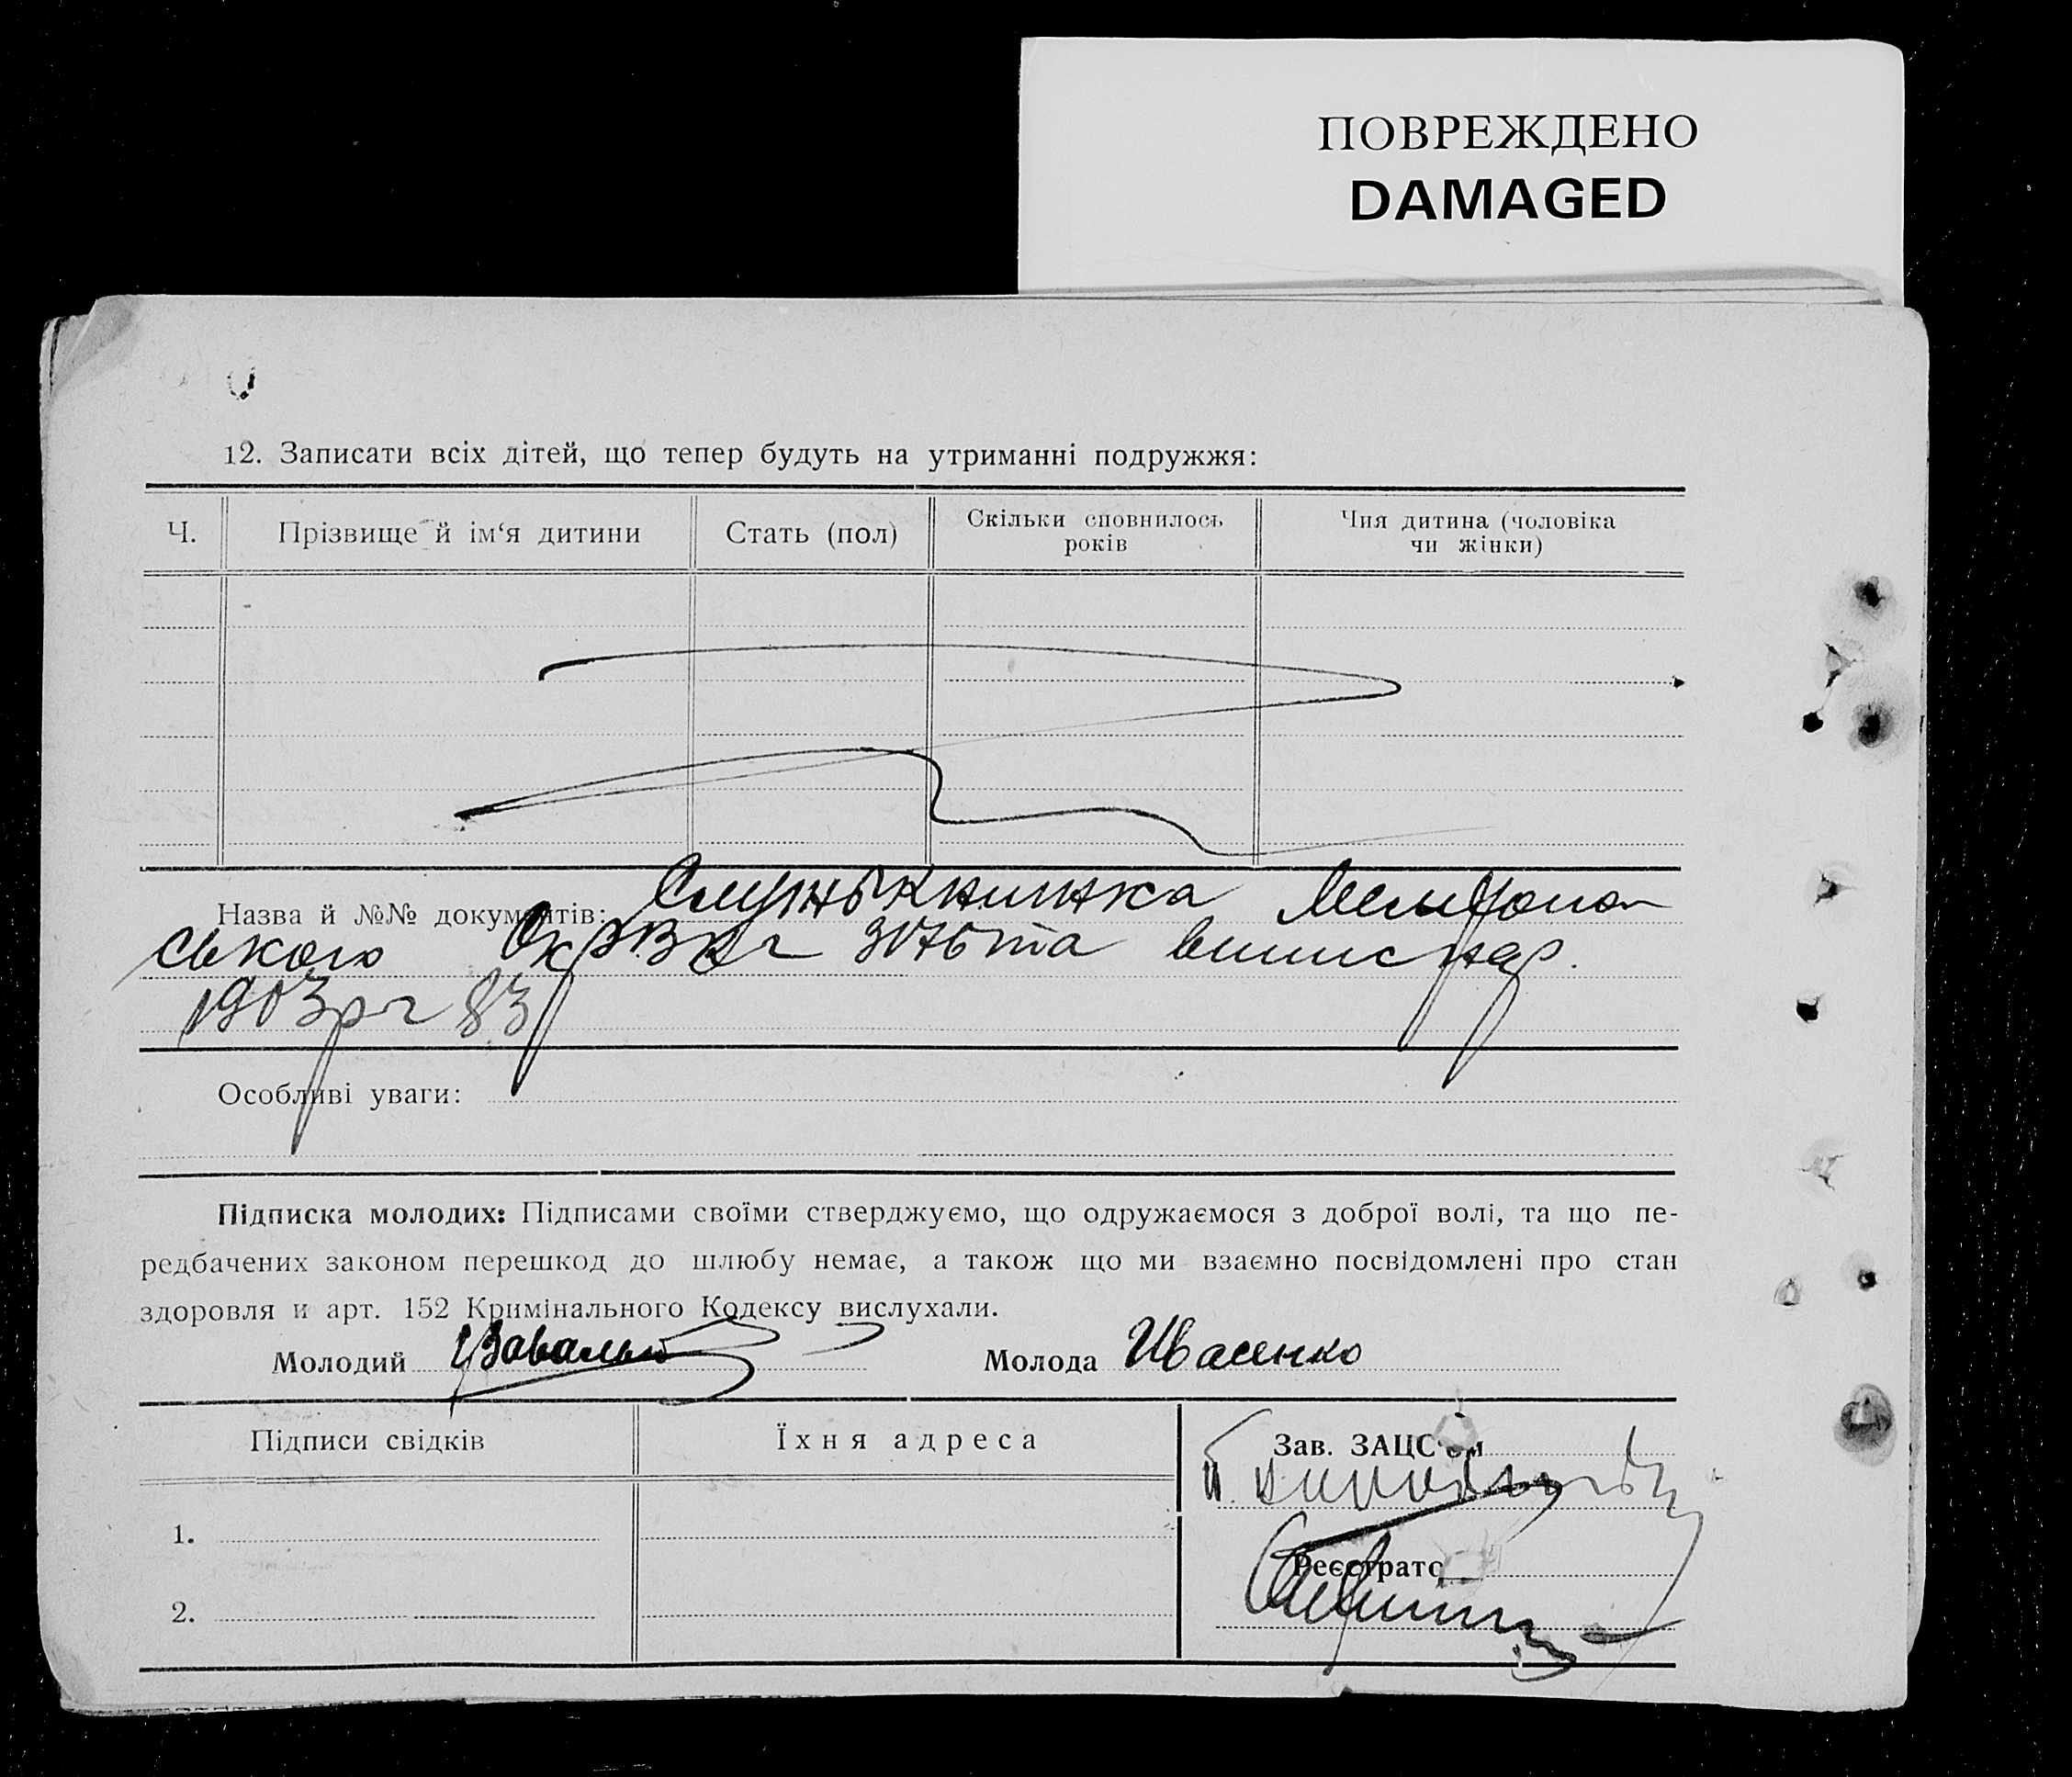 ПОВРЕЖДЕНО
DAMAGED
12. Записати всіх дітей, що тепер будуть на утриманні подружжя:
Ч.
Прізвище й ім‘я дитини
Стать (пол)
Скільки сповнилось
років
Чия дитина (чоловіка
чи жінки)
Назва й №№ документів:
ського
та
83
Особливі уваги:
Підписка молодих: Підписами своїми стверджуємо, що одружаємося з доброї волі, та що пе-
редбачених законом перешкод до шлюбу немає, а також що ми взаємно посвідомлені про стан
здоровля и арт. 152 Кримінального Кодексу вислухали.
Молодий
Молода Ивасенко
Підписи свідків
Їхня адреса
1.
2.
Зав. ЗАЦС‘ом
Реєстрато